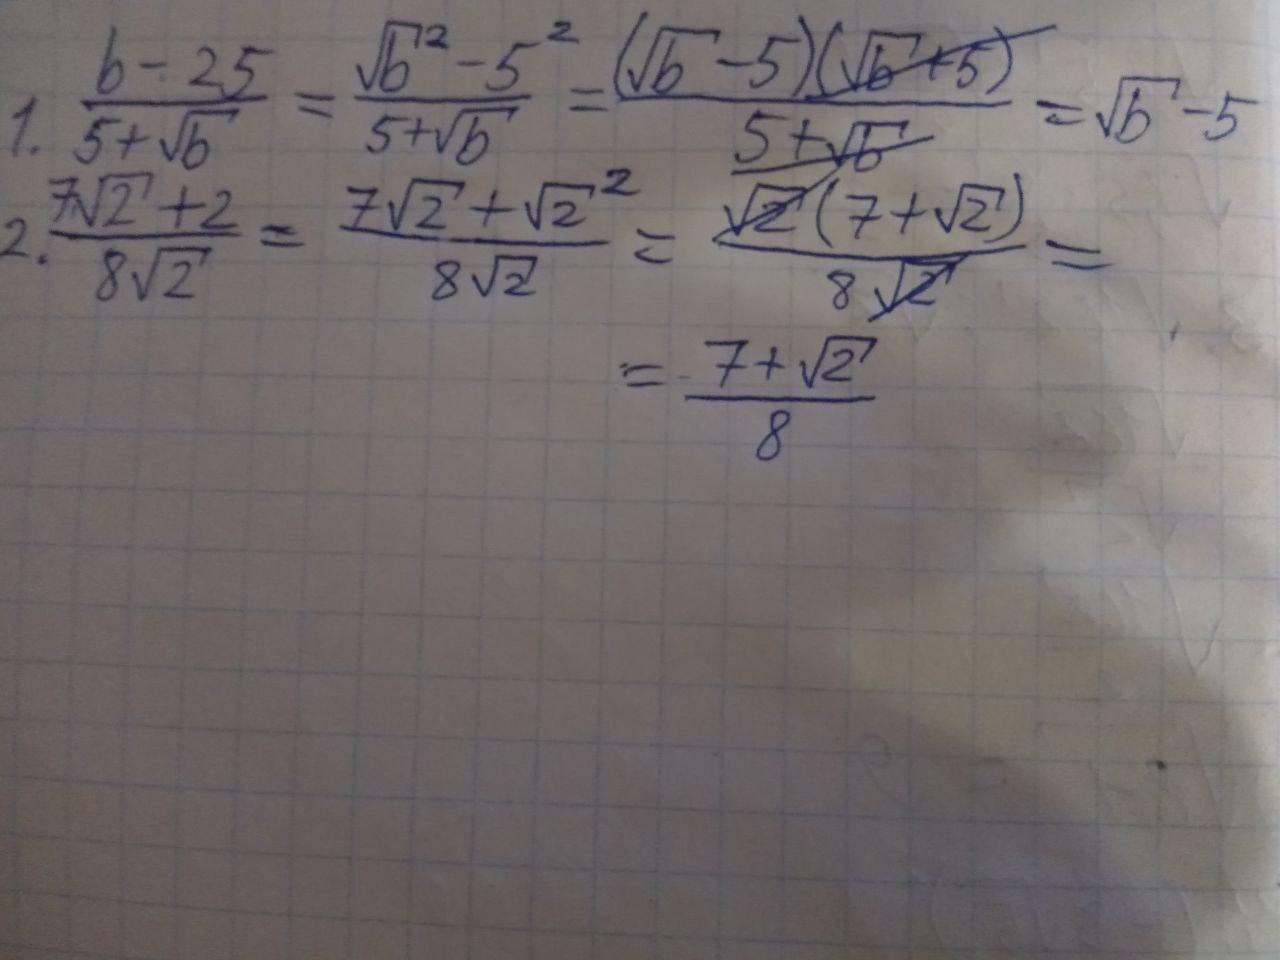 1. (b - 25)/(5 + √b) = (√b² - 5²)/(5 + √b) = ((√b - 5)(√b + 5))/(5 + √b) = √b - 5
2. (7√2 + 2)/(8√2) = (7√2 + √2²)/(8√2) = (√2(7 + √2))/(8√2) =
= (7 + √2)/8